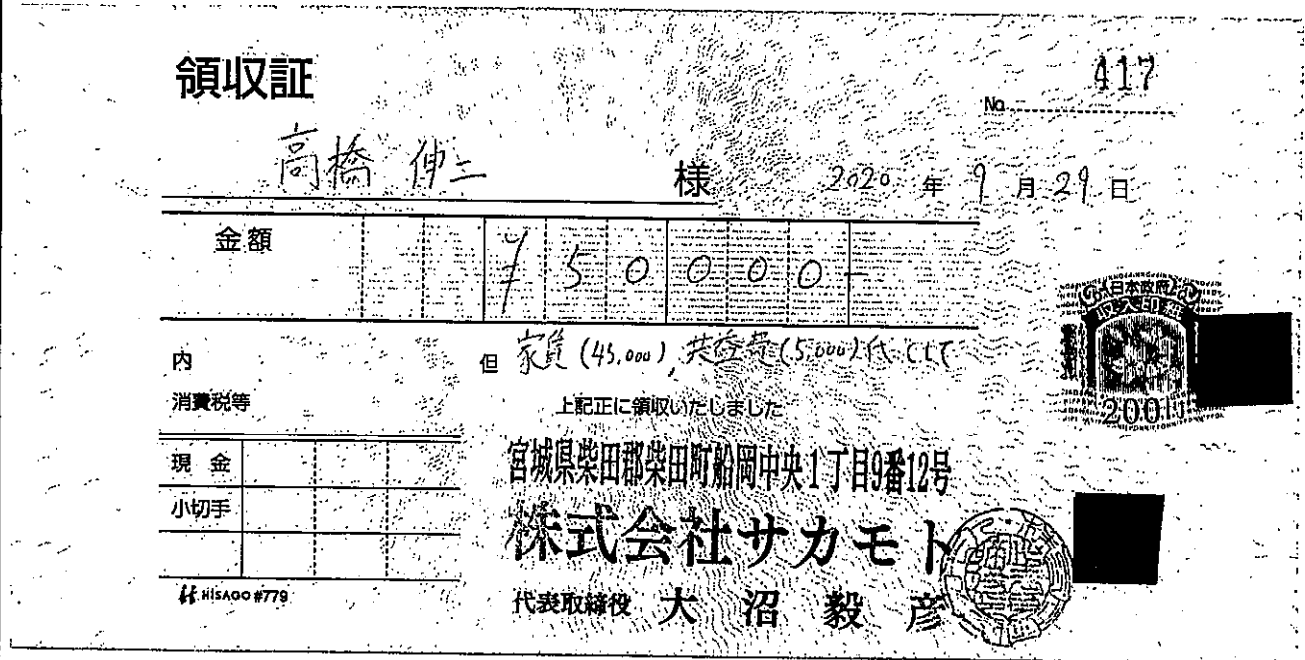 領収証
No. 417
高橋 伸二 様
2020 年 9 月 29 日
金額 ¥50000-
内
但 家賃(45,000), 共益費(5,000)代として
消費税等
上記正に領収いたしました
現金
小切手
日本政府
収入印紙
200円
宮城県柴田郡柴田町船岡中央1丁目9番12号
株式会社サカモト
代表取締役 大沼毅彦
HISAGO #779